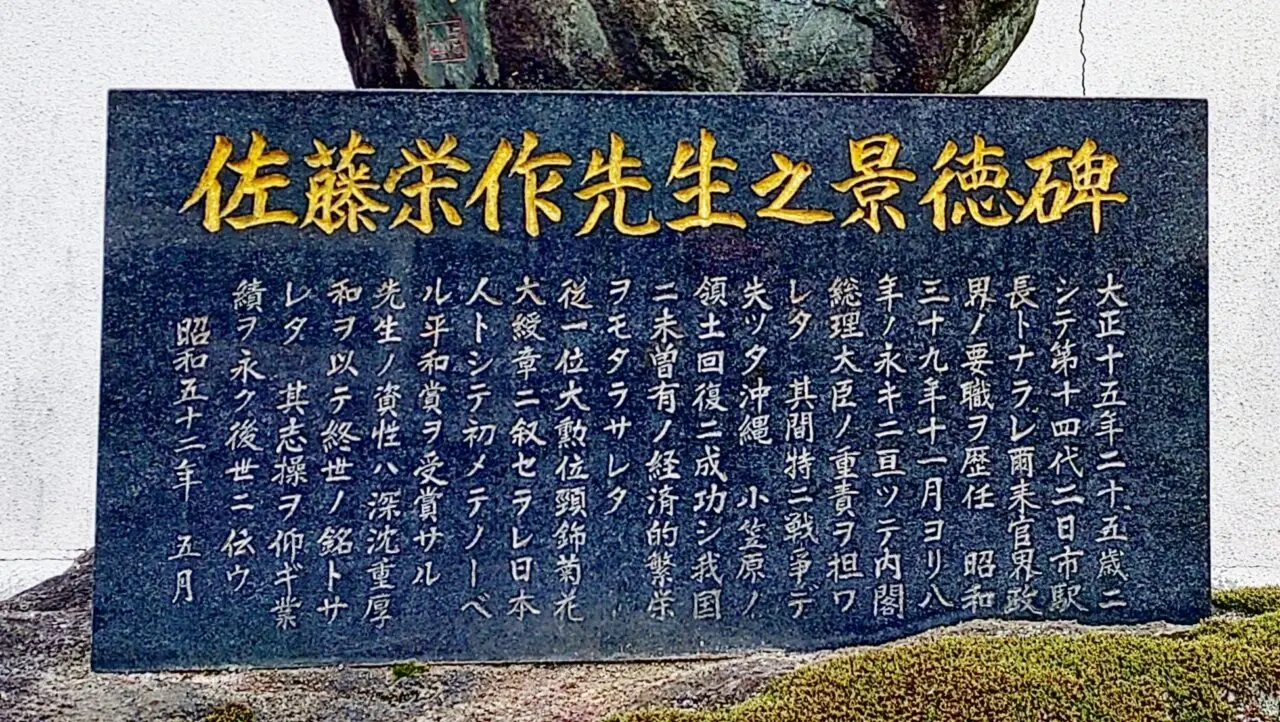 佐藤栄作先生之景徳碑
大正十五年二十五歳ニ
シテ第十四代二日市駅
長トナラレ爾来官界政
界ノ要職ヲ歴任　昭和
三十九年十一月ヨリ八
年ノ永キニ亘ツテ内閣
総理大臣ノ重責ヲ担ワ
レタ　其間特ニ戦争デ
失ツタ沖縄　小笠原ノ
領土回復ニ成功シ我国
ニ未曽有ノ経済的繁栄
ヲモタラサレタ
従一位大勲位頸飾菊花
大綬章ニ叙セラレ日本
人トシテ初メテノノーベ
ル平和賞ヲ受賞サル
先生ノ資性ハ深沈重厚
和ヲ以テ終世ノ銘トサ
レタ　其志操ヲ仰ギ業
績ヲ永ク後世ニ伝ウ
昭和五十二年　五月